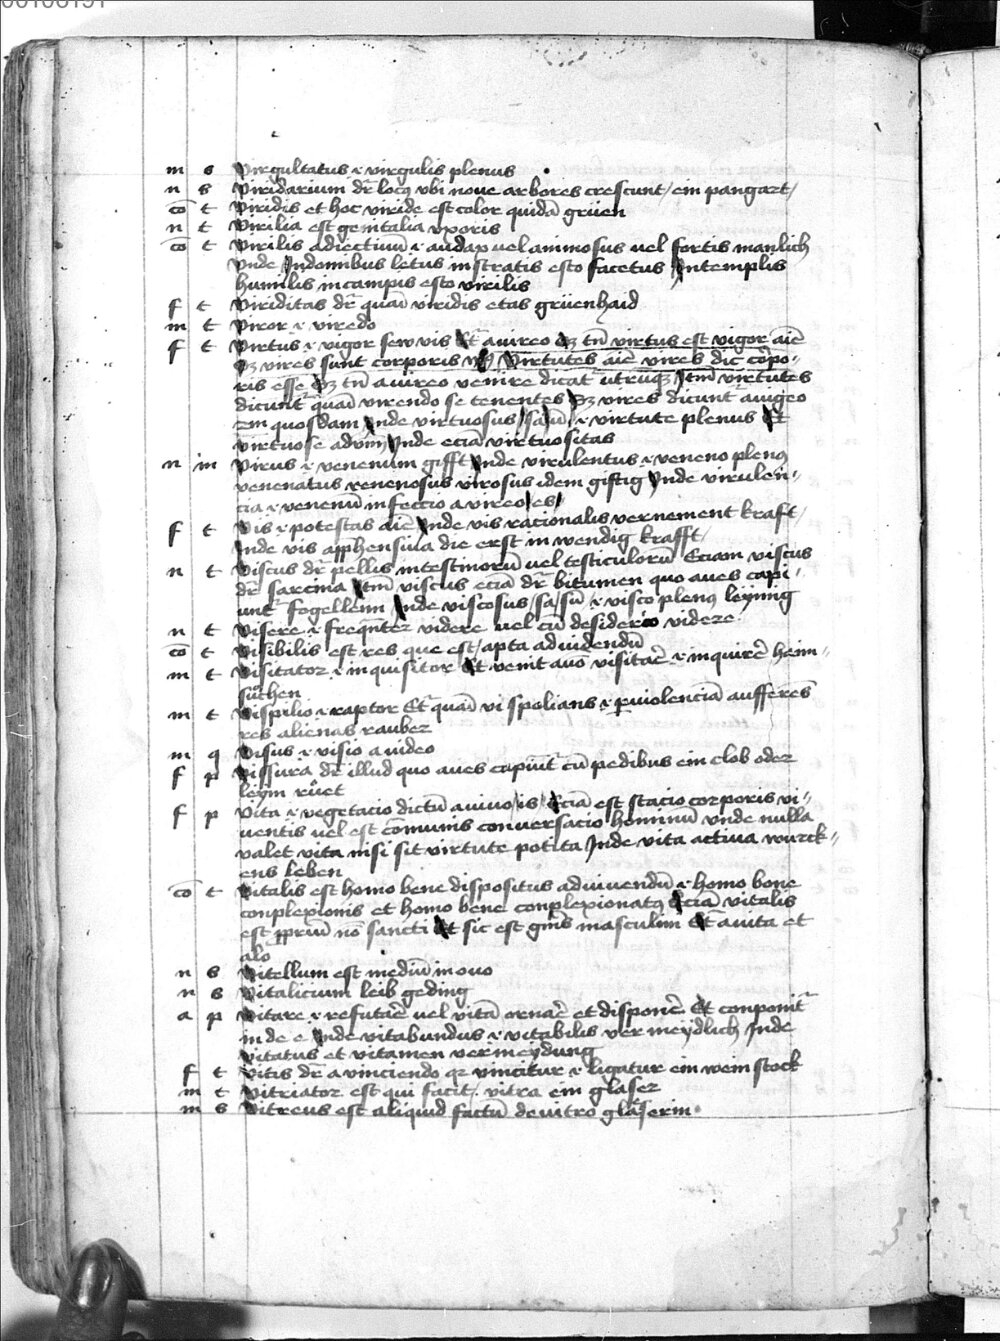 00100191
m s Virgultatus ⁊ virgulis plenus
n s Viridarium dr̄ locꝰ vbi noue arbores crescunt / ein pangart /
cō t Viridis et hoc viride est color quidā grüen
n t Virilia est genitalia vxoris
cō t Virilis adiectiuū ⁊ audax uel animosus uel fortis manlich
Vnde Indomibus letus in stratis esto facetus Intemplis
humilis in campis esto virilis
f t Viriditas dr̄ quasi viridis etas grüenhaid
m t Viror ⁊ viredo
f t Virtus ⁊ vigor seu vis Et a uireo Sꝫ tn̄ virtus est vigor aīe
Sꝫ vires sunt corporis Virtutes aīe vires dic corpo-
ris esse Sꝫ tn̄ a uireo venire dicat᷑ utrūqꝫ Itm̄ virtutes
dicunt᷑ quasi virendo se tenentes Sꝫ vires dicunt᷑ auigeo
em quosdam Inde virtuosus / sa / sū / ⁊ virtute plenus Et
virtuose aduīn Inde eciā virtuositas
n m Virus ⁊ venenum gifft Inde virulentus ⁊ veneno plenꝰ
venenatus venenosus virosus idem giftig Inde virulen-
cia ⁊ venenū infeccio a vireo / es /
f t Vis ⁊ potestas aīe Inde vis racionalis vernement kraft /
Inde vis apphensiua die erst inwendig krafft /
n t Viscus dr̄ pellis intestinorū uel testiculorū Eciam viscus
dr̄ sarcina Itm̄ viscus eciā dr̄ bitumen quo aues capi-
unt᷑ fogellenn Inde viscosus / sa / sū / ⁊ visco plenꝰ leymig
n t Visere ⁊ frequēter videre uel cū desiderio videre
cō t Visibilis est res que est / apta ad uidendū
m t Visitator ⁊ inquisitor Et venit a uiso visitar̄ ⁊ inquirer̄ heim-
suchen
m t Vispilio ⁊ raptor Et quasi vi spolians ⁊ ꝑ violenciā aufferēs
res alienas rauber
m q Visus ⁊ visio a video
f p Vissura dr̄ illud quo aues capiūt᷑ cū pedibus ein clob oder
leym rüet
f p Vita ⁊ vegetacio dictū a uiuo / is / Eciā est stacio corporis vi-
uentis uel est cōmunis conuersacio hominū vnde nulla
valet vita nisi sit virtute potita Inde vita actiua wurck-
ens leben
cō t Vitalis est homo bene dispositus ad uiuendū ⁊ homo bone
conplexionis et homo bene conplexionatꝰ Eciā vitalis
est ꝓpriū nō sancti Et sic est gn̄is masculini Et a uita et
alo
n s Vitellum est mediū in ouo
n s Vitalicium leib geding
a p Vitare ⁊ refutar̄ uel vitā ornar̄ et disponer̄ Et componit᷑
in de e Inde vitabundus ⁊ vitabilis vermeydlich Inde
vitatus et vitamen vermeydung
f t Vitis dr̄ a vinciendo qꝛ vincitur ⁊ ligatur ein weinstock
m t Vitriator est qui facit / vitra ein glaser
m s Vitreus est aliquid factū de uitro gläserin